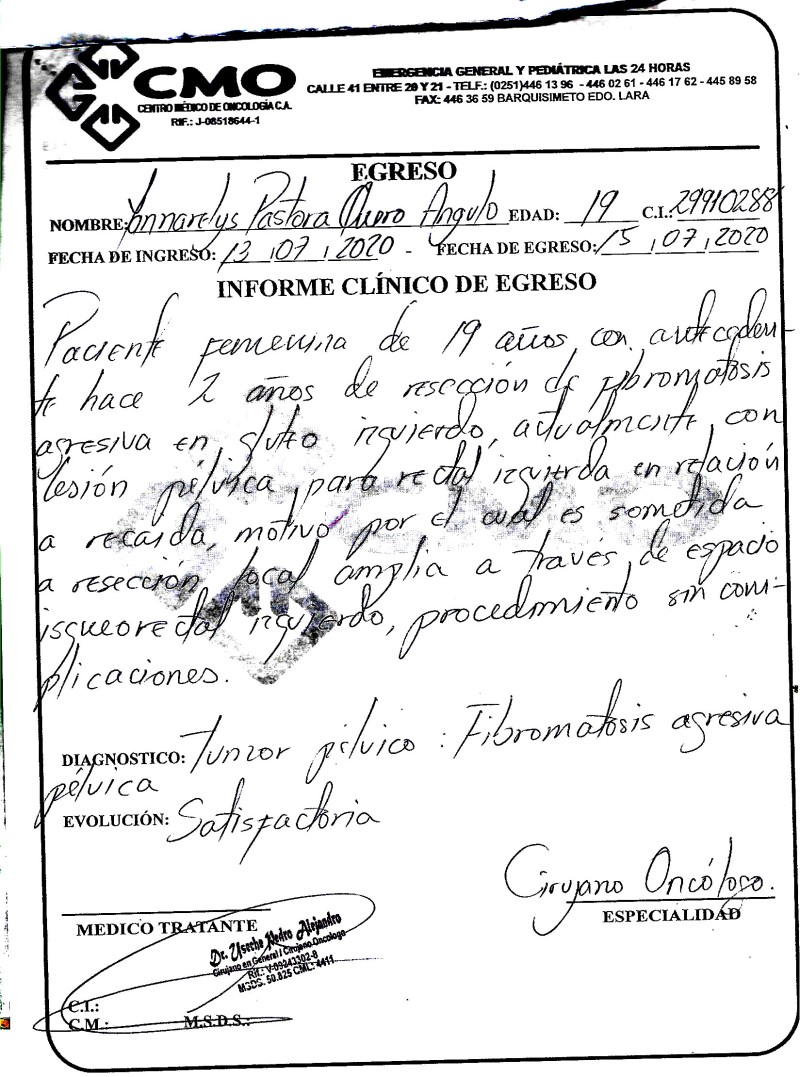 CMO
CENTRO MÉDICO DE ONCOLOGÍA C.A.
RIF.: J-08518644-1
EMERGENCIA GENERAL Y PEDIÁTRICA LAS 24 HORAS
CALLE 41 ENTRE 20 Y 21 - TELF.: (0251)446 13 96 - 446 02 61 - 446 17 62 - 445 89 58
FAX: 446 36 59 BARQUISIMETO EDO. LARA
EGRESO
NOMBRE: Yonnarelys Pastora Quero Angulo EDAD: 19 C.I.: 29910288
FECHA DE INGRESO: 13 / 07 / 2020 - FECHA DE EGRESO: 15 / 07 / 2020
INFORME CLÍNICO DE EGRESO
Paciente femenina de 19 años, con anteceden-
te hace 2 años de resección de fibromatosis
agresiva en gluteo izquierdo, actualmente, con
lesión pélvica, para rectal izquierda en relación
a recaida, motivo por el cual es sometida
a resección local amplia a través de espacio
isqueorectal izquierdo, procedimiento sin com-
plicaciones.
DIAGNOSTICO: Tumor pélvico : Fibromatosis agresiva
pélvica
EVOLUCIÓN: Satisfactoria
Cirujano Oncólogo.
ESPECIALIDAD
MEDICO TRATANTE
Dr. Useche Pedro Alejandro
Cirujano en General / Cirujano Oncologo
Rif.: V-09243302-8
MSDS. 50.825 CML: 4411
C.I.:
C.M.: M.S.D.S.: